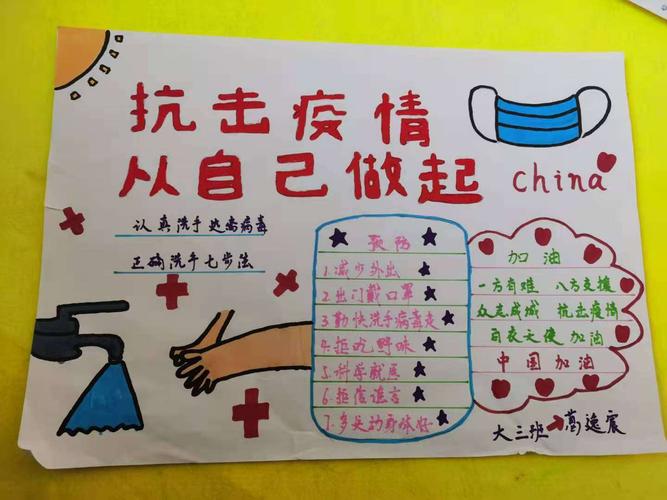 抗击疫情
从自己做起
china
认真洗手远离病毒
正确洗手七步法
预防
1.减少外出
2.出门戴口罩
3.勤快洗手病毒走
4.拒吃野味
5.科学就医
6.拒信谣言
7.多运动身体好
加油
一方有难 八方支援
众志成城 抗击疫情
白衣天使 加油
中国加油
大三班 葛逸震